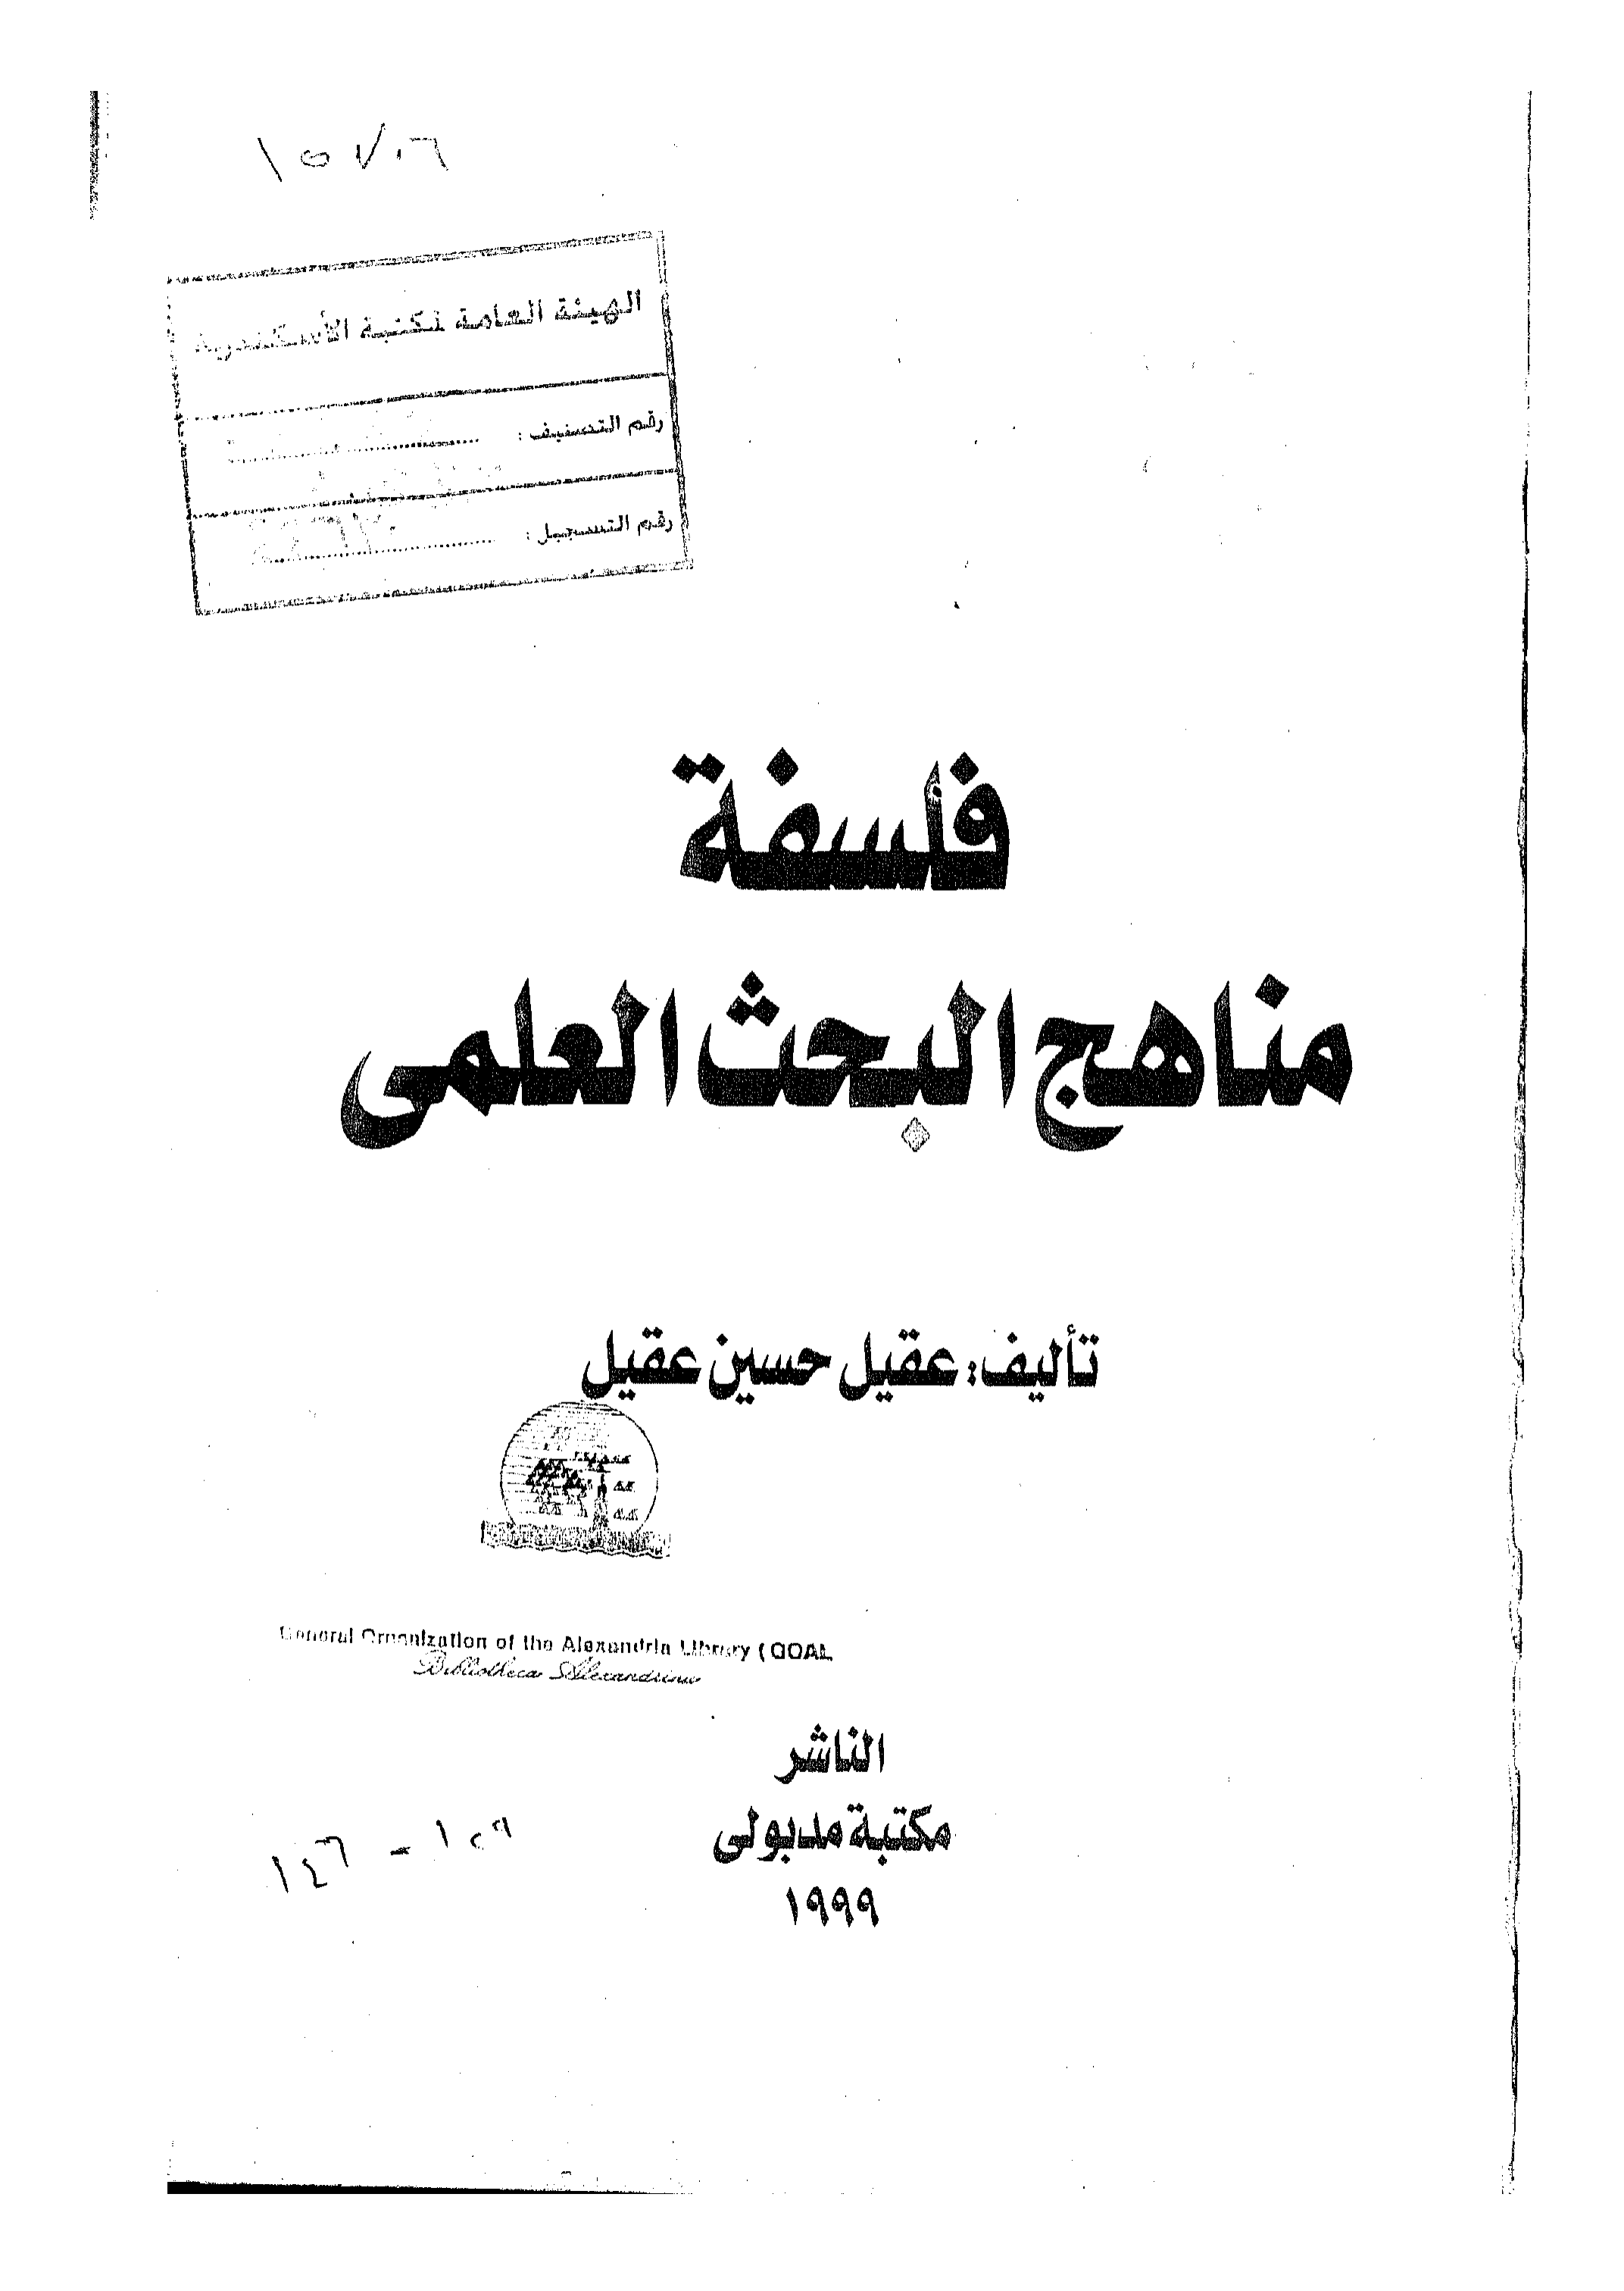 الهيئة العامة لمكتبة الأسكندرية
رقم التصنيف :
رقم التسجيل :
فلسفة
مناهج البحث العلمى
تأليف: عقيل حسين عقيل
General Organization of the Alexandria Library (GOAL
Bibliotheca Alexandrina
الناشر
مكتبة مدبولى
١٩٩٩